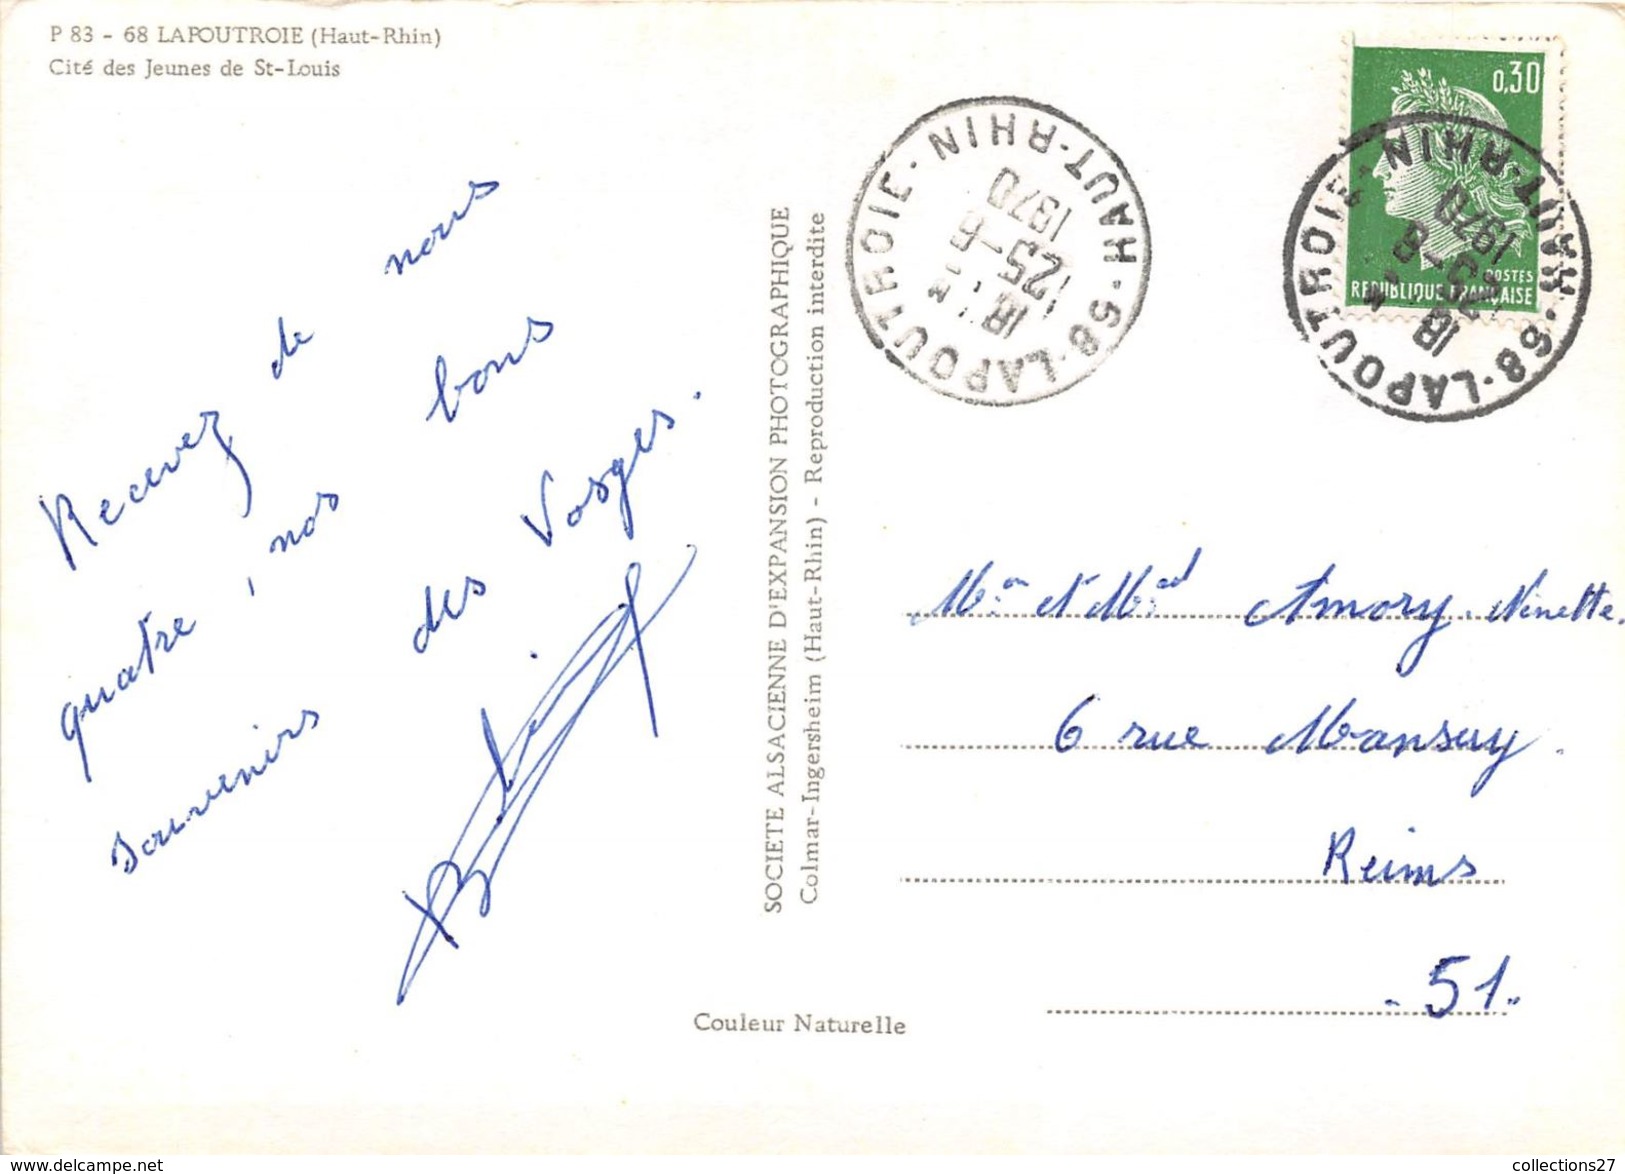 P 83 - 68 LAPOUTROIE (Haut-Rhin)
Cité des Jeunes de St-Louis
Recevez de nous
quatre, nos bons
souvenirs des Vosges.
SOCIETE ALSACIENNE D'EXPANSION PHOTOGRAPHIQUE
Colmar-Ingersheim (Haut-Rhin) - Reproduction interdite
Couleur Naturelle
68 - LAPOUTROIE - HAUT-RHIN
18
1970
0,30
POSTES
REPUBLIQUE FRANÇAISE
68 - LAPOUTROIE - HAUT-RHIN
18
1970
Amory. Ninette.
6 rue Mansuy.
Reims
- 51 -
collections27